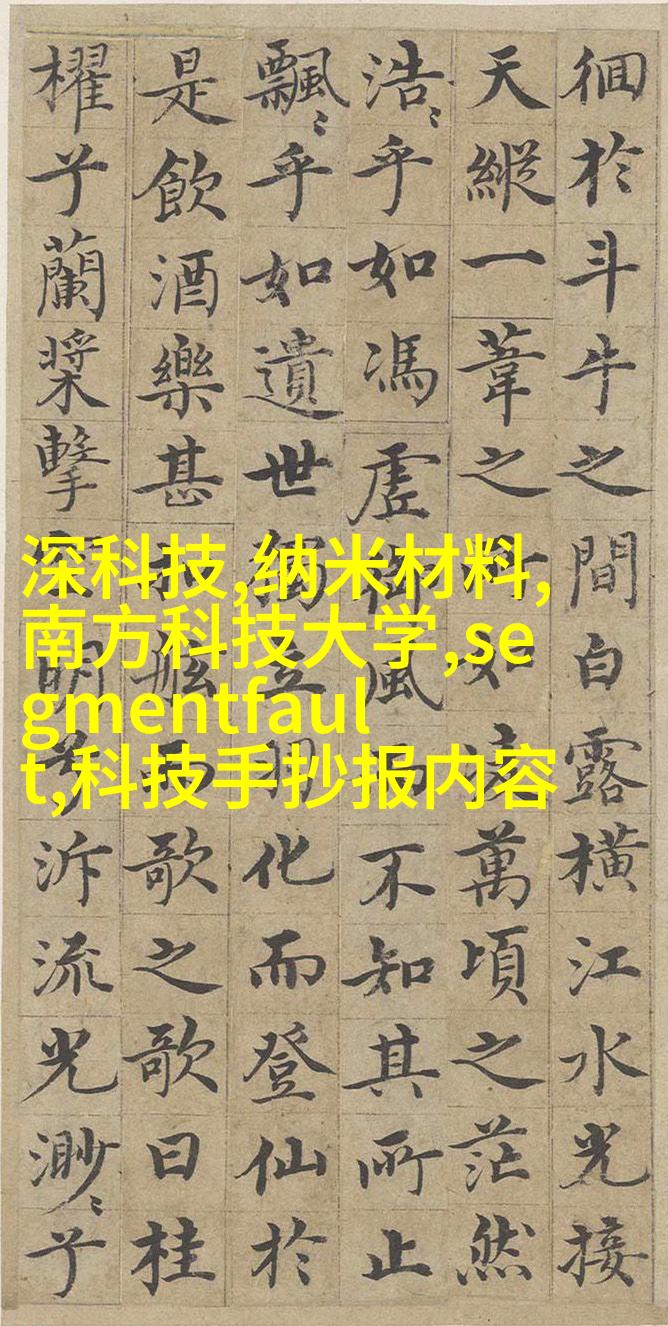 徊於斗牛之間白露橫江水光接
天縱一葦之所如凌萬頃之茫然
浩〻乎如馮虛御風而不知其所止
飄〻乎如遺世獨立羽化而登仙於
是飲酒樂甚扣舷而歌之歌曰桂
櫂兮蘭槳擊空明兮泝流光渺〻兮
深科技,纳米材料,
南方科技大学,se
gmentfaul
t,科技手抄报内容